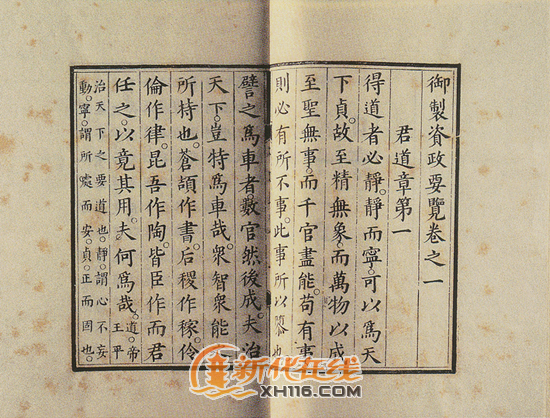 御製資政要覽卷之一
君道章第一
得道者必靜。靜而寧。可以爲天
下貞。故至精無象。而萬物以成。
至聖無事。而千官盡能。苟有事
則必有所不事。此事所以
譬之爲車者。數官然後成。夫治
天下。豈特爲車哉。衆智衆能
所持也。蒼頡作書。后稷作稼。伶
倫作律。昆吾作陶。皆臣作而君
任之。以竟其用。夫何爲哉。道。帝
王平
治天下之要道也。靜。謂心不妄
動。寧。謂所處而安。貞。正而固也。
新代在线
XH116.COM